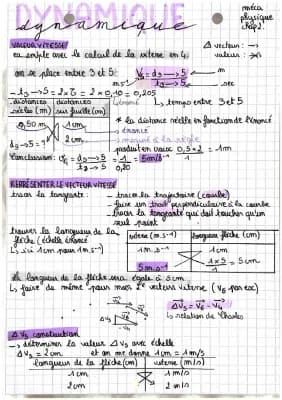 DYNAMIQUE
dynamique
méca
physique
chap2.
VALEUR VITESSE
Δ vecteur : →
ex simple avec le calcul de la vitesse en 4.
valeur :
on se place entre 3 et 5:
V₄ = d3→5 / t3→5
m
m.s⁻¹
sec
→ t3→5 = 2×τ = 2×0,10 = 0,20s
énoncé
↳ temps entre 3 et 5
distances réelles (m)
distances sur feuille (cm)
0,50m
1cm
d3→5 = ?
2cm
* la distance réelle en fonction de l'énoncé
→ énoncé
→ mesuré à la règle
produit en croix 0,5×2 / 1 = 1m
Conclusion: V₄ = d3→5 / t3→5 = 1 / 0,20 = 5m/s⁻¹
REPRÉSENTER LE VECTEUR VITESSE
tracer la tangente:
→ tracer la trajectoire (courbe)
→ faire un trait perpendiculaire à la courbe
→ tracer la tangente qui doit toucher qu'un seul point
trouver la longueur de la flèche (échelle énoncé
↳ ici 1cm pour 1m.s⁻¹)
vitesse (m.s⁻¹)
longueur flèche (cm)
1m.s⁻¹
1cm
5m.s⁻¹
1×5 / 1 = 5cm
la longueur de la flèche sera égale à 5cm
↳ faire du même pour mon 2e vecteur vitesse (V₆ par ex)
ΔV₅ = V₆ - V₄
↳ relation de Chasles
ΔV₅
V₆
-V₄
ΔV₅ construction
→ déterminer la valeur ΔV₅ avec échelle
ΔV₅ = 2cm et on me donne 1cm = 1m/s
longueur de la flèche (cm)
vitesse (m/s)
1cm
1m/s
2cm
2m/s